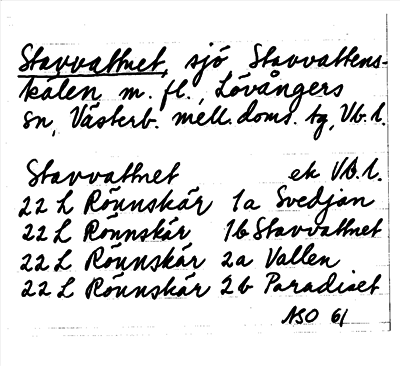 Stavvattnet, sjö Stavvattens-
kålen m. fl., Lövångers
sn, Västerb. mell. doms. tg, Vb. l.
Stavvattnet ek Vb. l.
22 L Rönnskär 1a Svedjan
22 L Rönnskär 1b Stavvattnet
22 L Rönnskär 2a Vallen
22 L Rönnskär 2b Paradiset
ASO 61